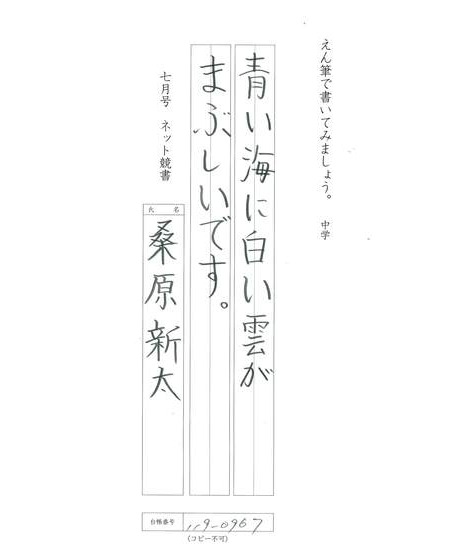 えん筆で書いてみましょう。 中学
青い海に白い雲が
まぶしいです。
七月号 ネット競書
氏 名
桑原新太
台帳番号
119-0967
(コピー不可)